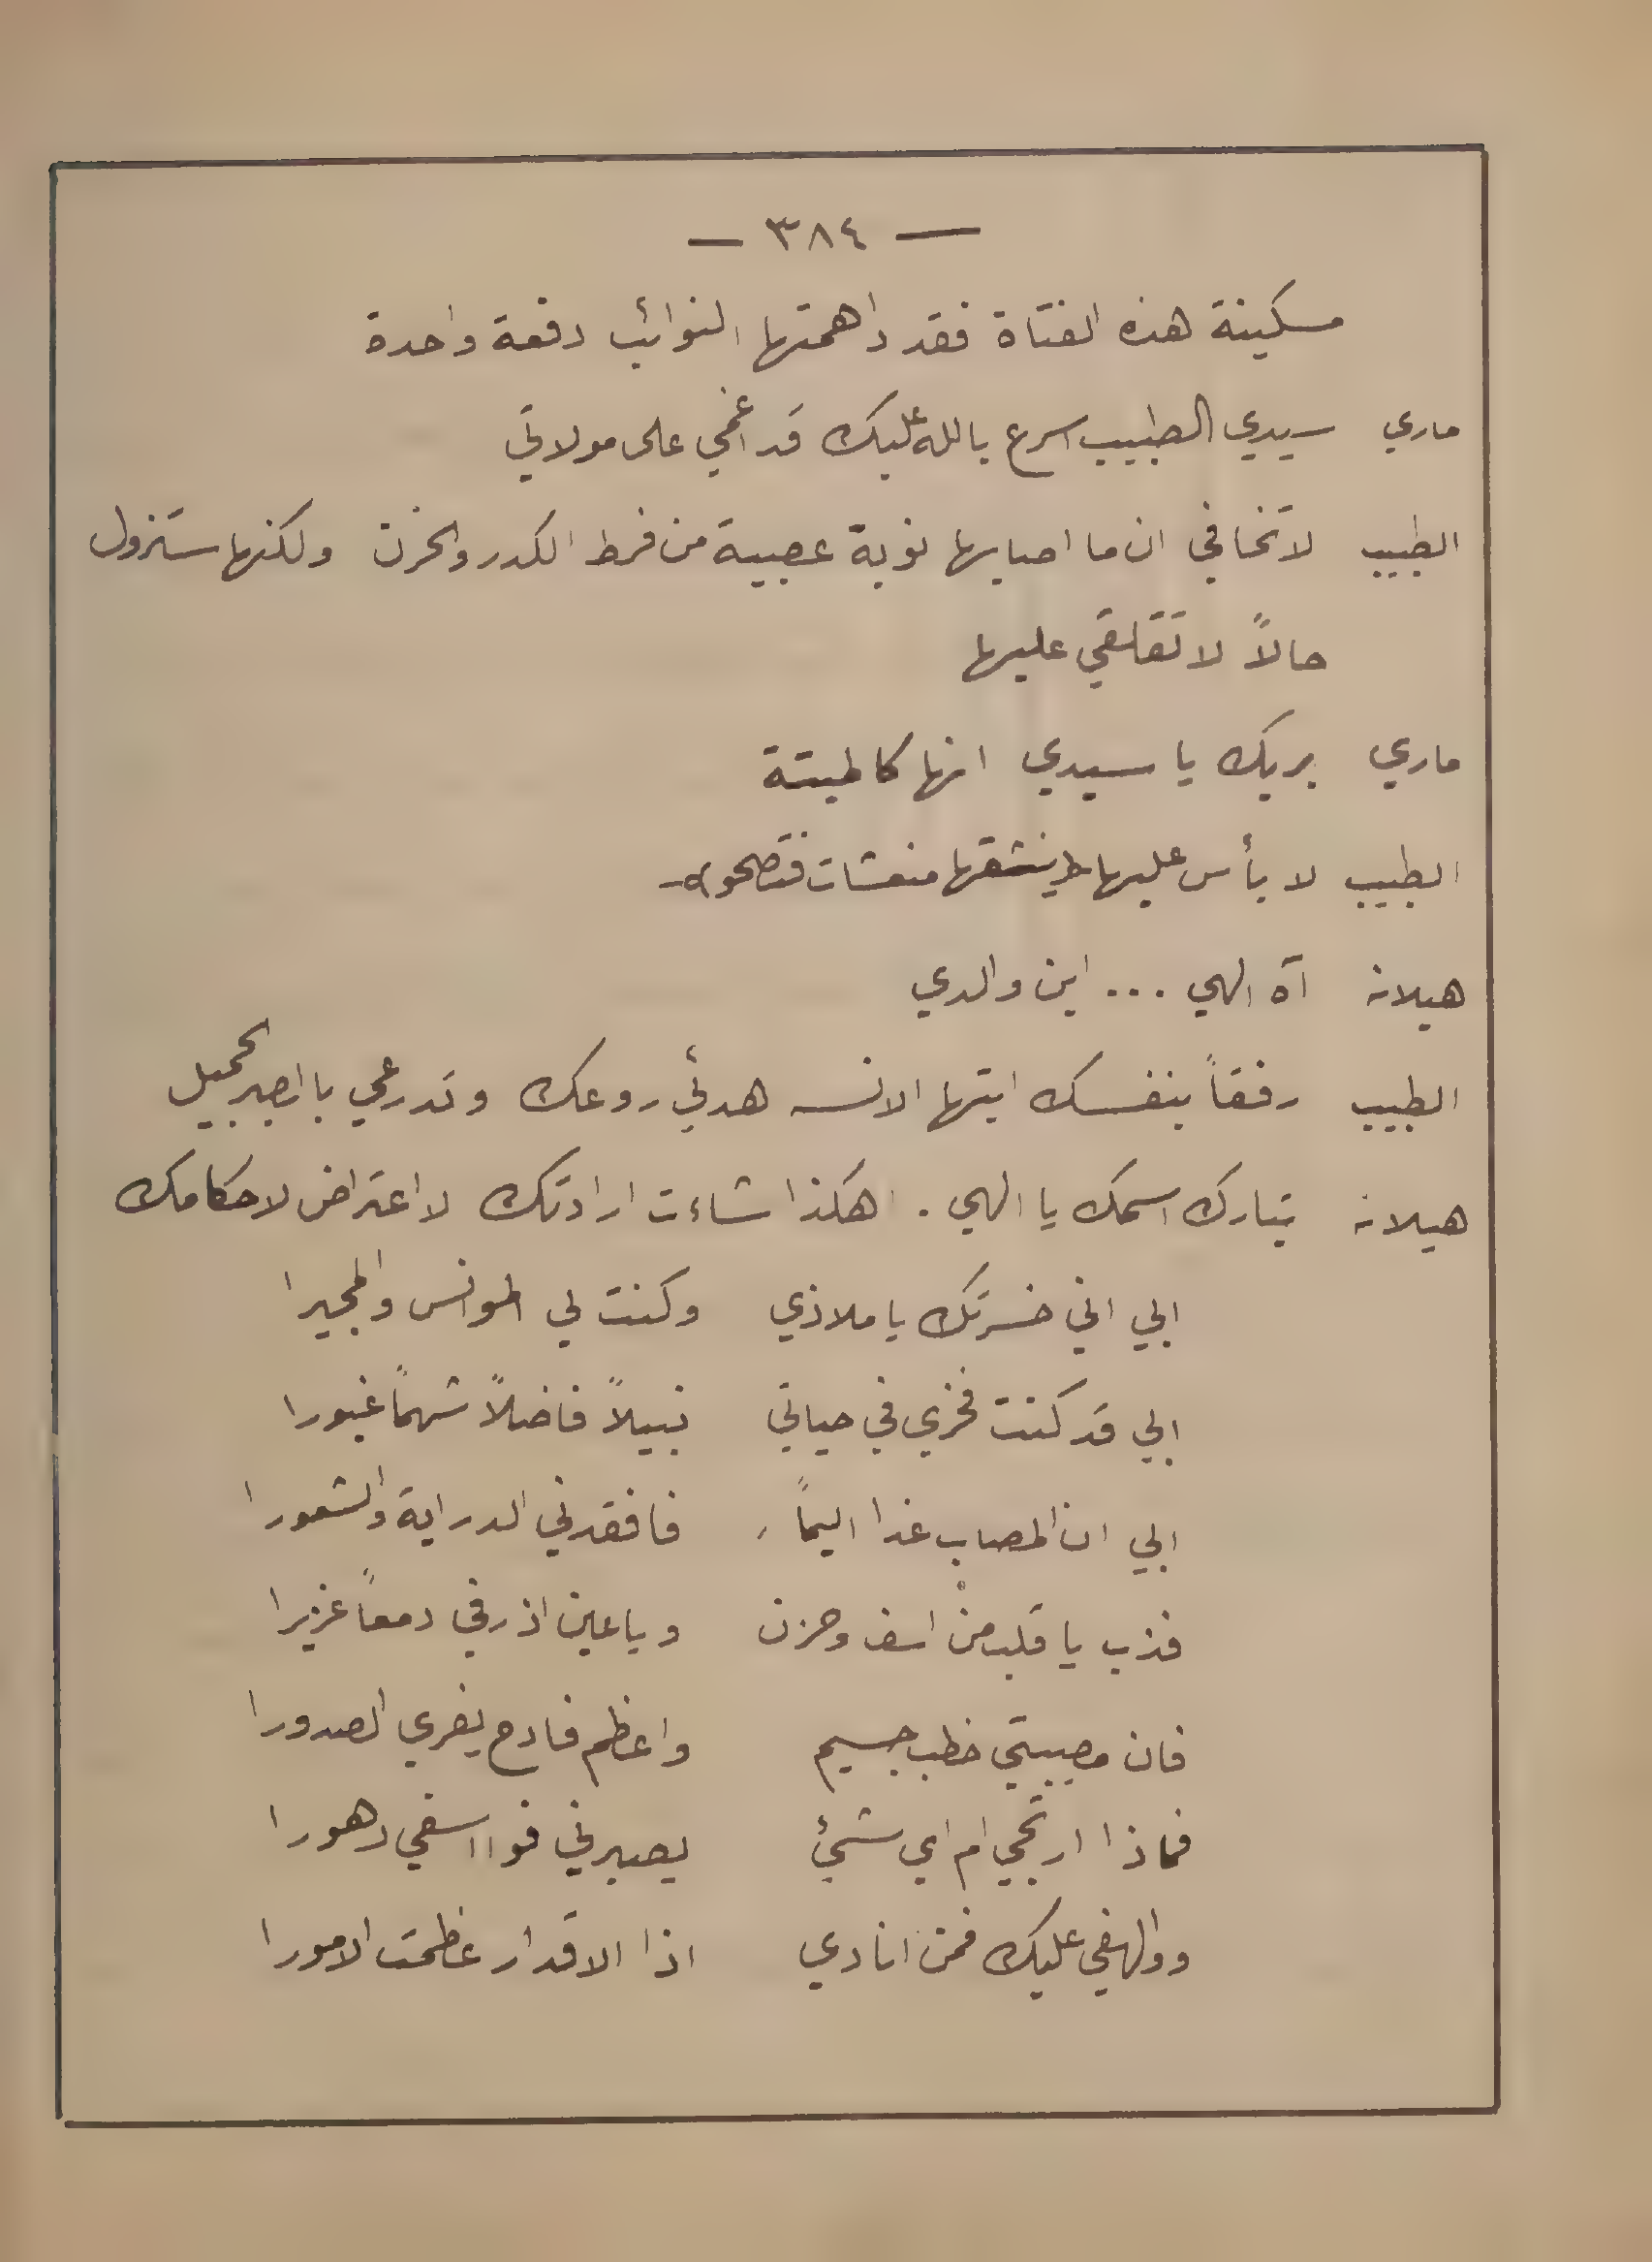 — ٣٨٤ —
مسكينة هذه الفتاة فقد داهمتها النوائب دفعة واحدة
ماري سيدي الطبيب اسرع بالله عليك قد اغمي على مولاتي
الطبيب لا تخافي ان ما اصابها نوبة عصبية من فرط الكدر والحزن ولكنها ستزول
حالاً لا تقلقي عليها
ماري بربك يا سيدي انها كالميتة
الطبيب لا بأس عليها (ينشقها منعشات فتصحو)
هيلانه آه الهي ... اين والدي
الطبيب رفقاً بنفسك ايتها الانسه هدئي روعك وتدرعي بالصبر الجميل
هيلانه تبارك اسمك يا الهي . هكذا شاءت ارادتك لا اعتراض لاحكامك
ابي اني خسرتك يا ملاذي وكنت لي الموانس والمجيرا
ابي قد كنت فخري في حياتي نبيلاً فاضلاً شهماً غيورا
ابي ان المصاب غدا اليماً فافقدني الدراية والشعورا
فذب يا قلب منْ اسف وحزن ويا عين اذرفي دمعاً غزيرا
فان مصيبتي خطب جسيم واعظم فادح يفري الصدورا
فماذا ارتجي ام اي شيئ يصبرني فوا اسفي دهورا
ووالهفي عليك فمن انادي اذا الاقدار عظمت الامورا